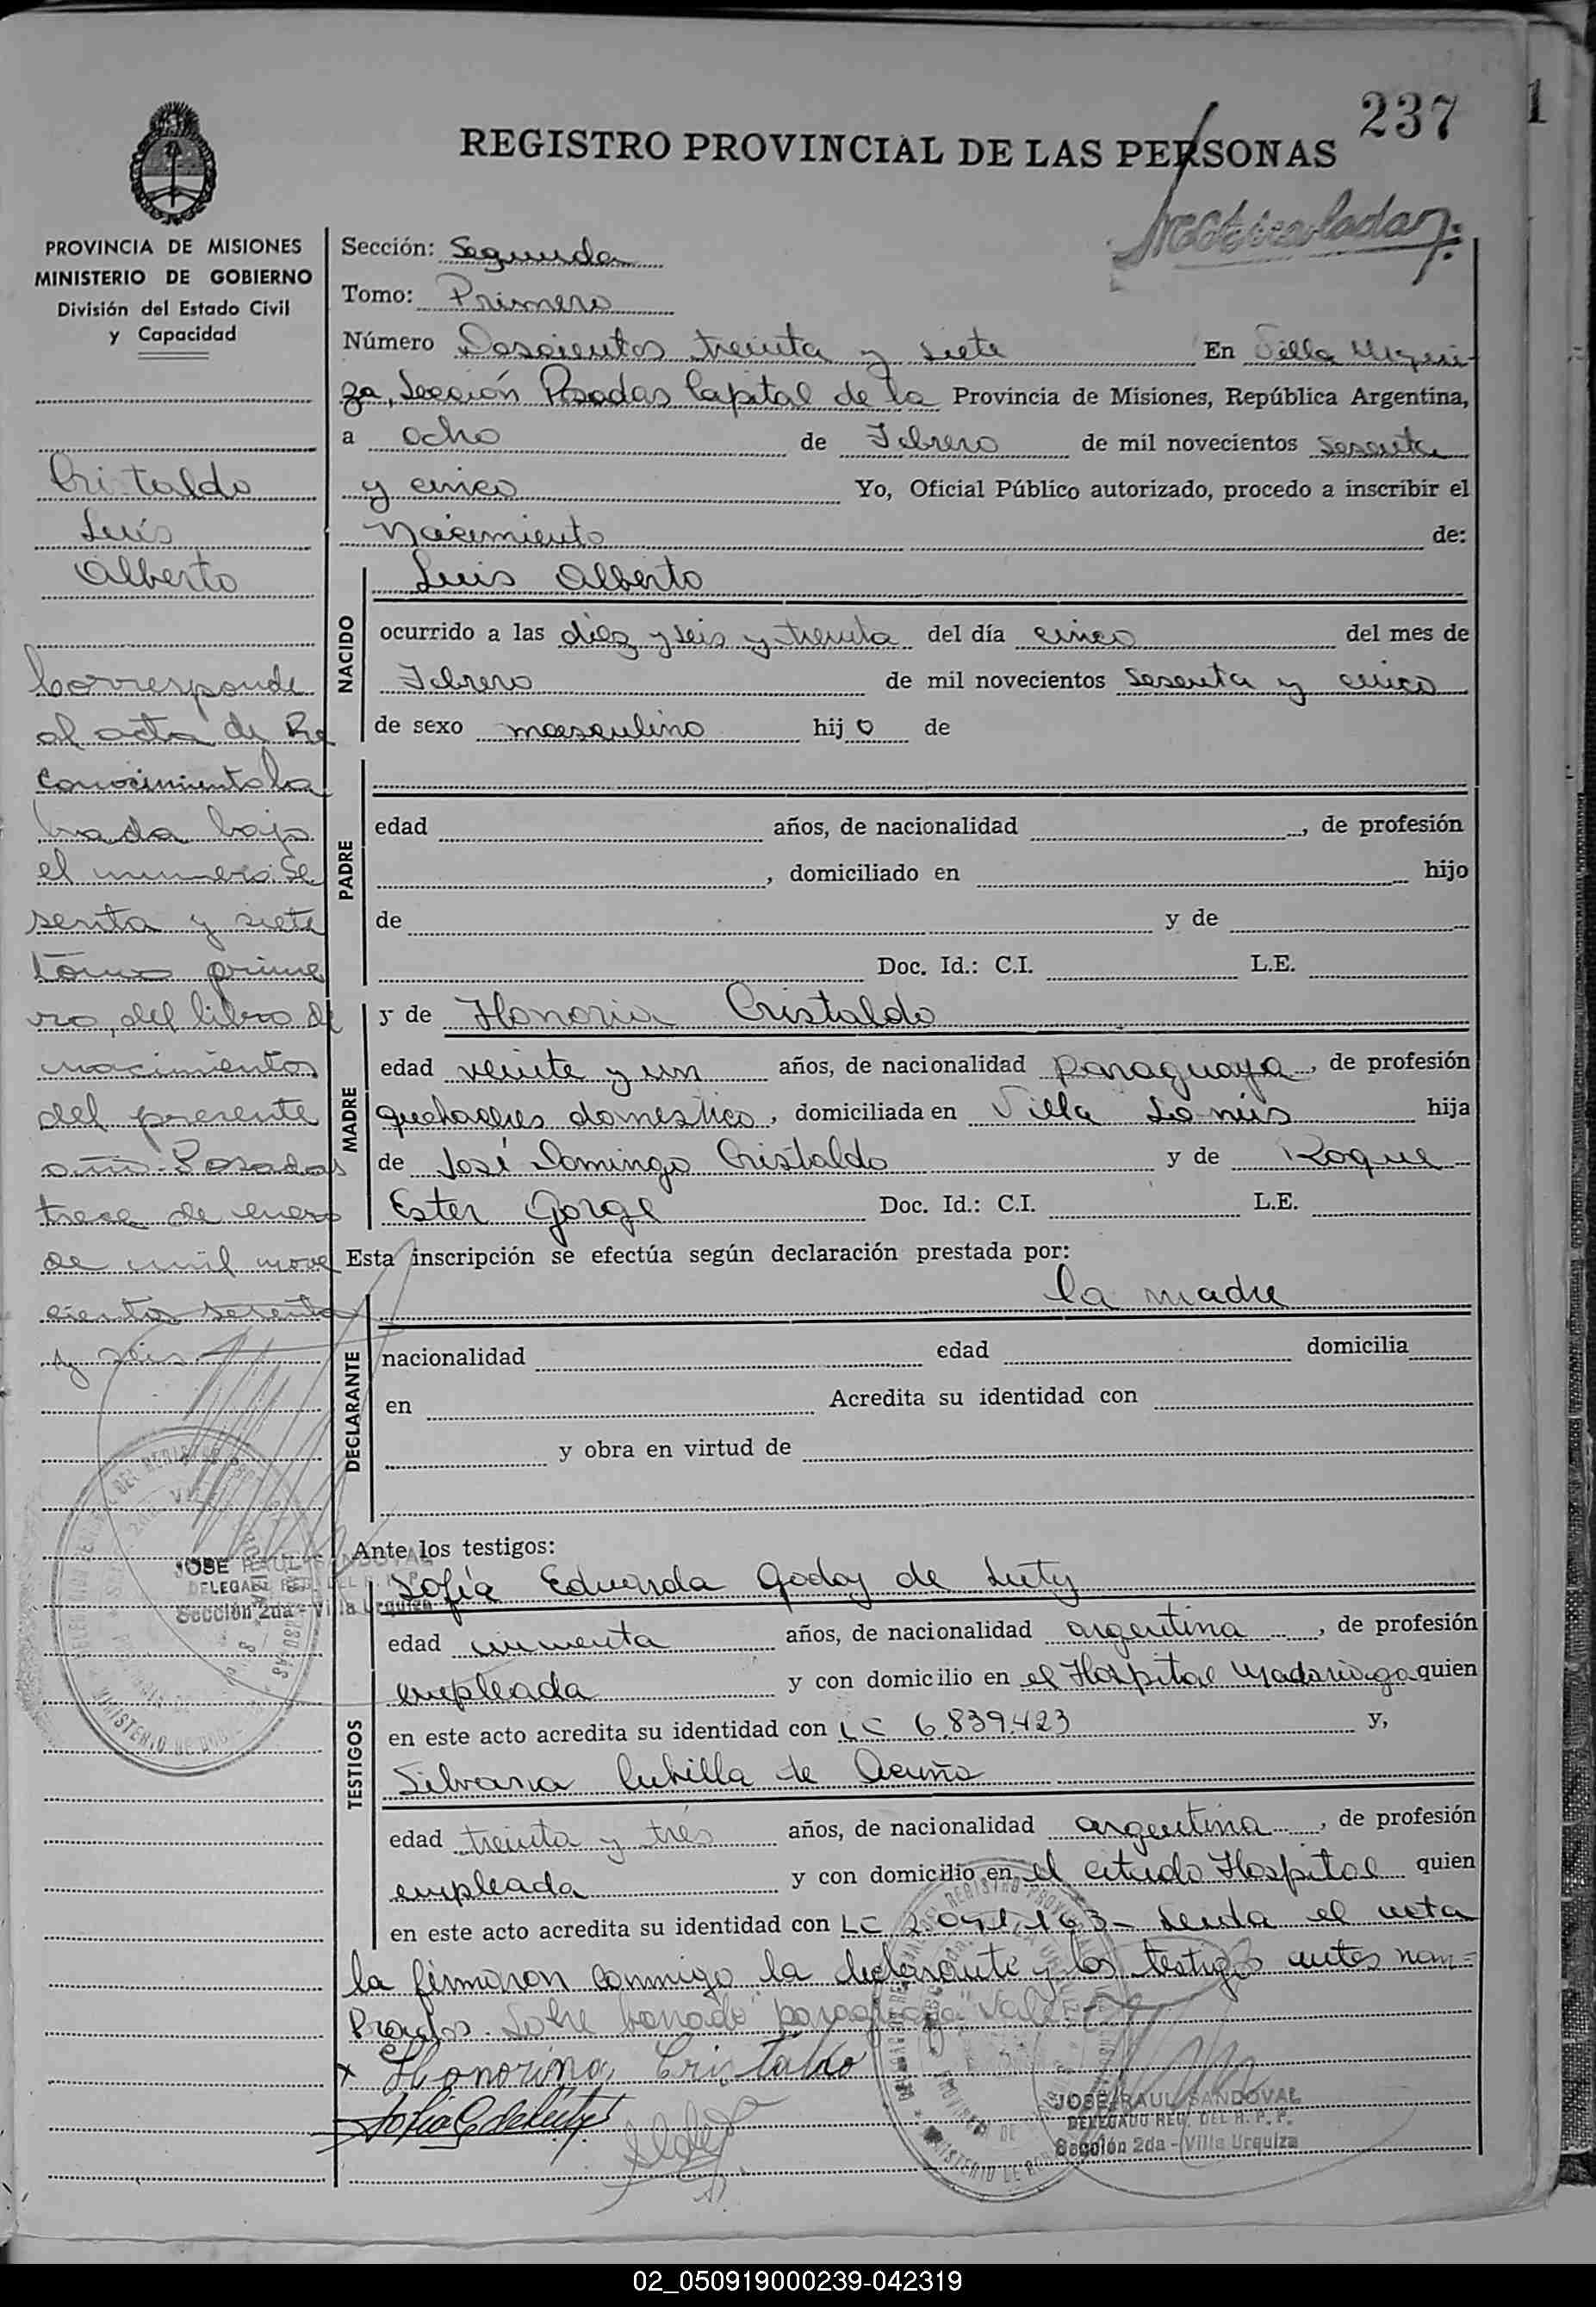 237
REGISTRO PROVINCIAL DE LAS PERSONAS
PROVINCIA DE MISIONES
MINISTERIO DE GOBIERNO
División del Estado Civil
y Capacidad
Cristaldo
Luis
Alberto
Corresponde
al acta de Re
conocimiento la
brada bajo
el numero Se
senta y siete
tomo prime
ro, del libro de
nacimientos
del presente
año. Posadas
trece de enero
de mil nove
cientos sesenta
y seis
JOSE RAUL SANDOVAL
DELEGADO REG. DEL R. P. P.
Sección 2da - Villa Urquiza
Sección: Segunda
Tomo: Primero
Número Doscientos treinta y siete En Villa Urqui-
za, Sección Posadas Capital de la Provincia de Misiones, República Argentina,
a ocho de Febrero de mil novecientos sesenta
y cinco Yo, Oficial Público autorizado, procedo a inscribir el
Nacimiento de:
NACIDO
Luis Alberto
ocurrido a las diez y seis y treinta del día cinco del mes de
Febrero de mil novecientos sesenta y cinco
de sexo masculino hijo de
PADRE
edad años, de nacionalidad , de profesión
, domiciliado en hijo
de y de
Doc. Id.: C.I. L.E.
MADRE
y de Honoria Cristaldo
edad veinte y un años, de nacionalidad paraguaya, de profesión
quehaceres domestico, domiciliada en Villa Lanús hija
de José Domingo Cristaldo y de Roque
Ester Gorge Doc. Id.: C.I. L.E.
Esta inscripción se efectúa según declaración prestada por:
la madre
DECLARANTE
nacionalidad edad domicilia
en Acredita su identidad con
y obra en virtud de
Ante los testigos:
TESTIGOS
Sofía Eduarda Godoy de
edad cincuenta años, de nacionalidad argentina, de profesión
empleada y con domicilio en el Hospital Madariaga quien
en este acto acredita su identidad con LC 6.839.423 y,
Silvana Cubilla de Acuña
edad treinta y tres años, de nacionalidad argentina, de profesión
empleada y con domicilio en el citado Hospital quien
en este acto acredita su identidad con LC el acta
la firmaron conmigo la declarante y los testigos antes nom=
brados. Sobre borrado "paraguaya" Vale.
x Honorina Cristaldo
JOSE RAUL SANDOVAL
DELEGADO REG. DEL R. P. P.
Sección 2da - Villa Urquiza
02_050919000239-042319